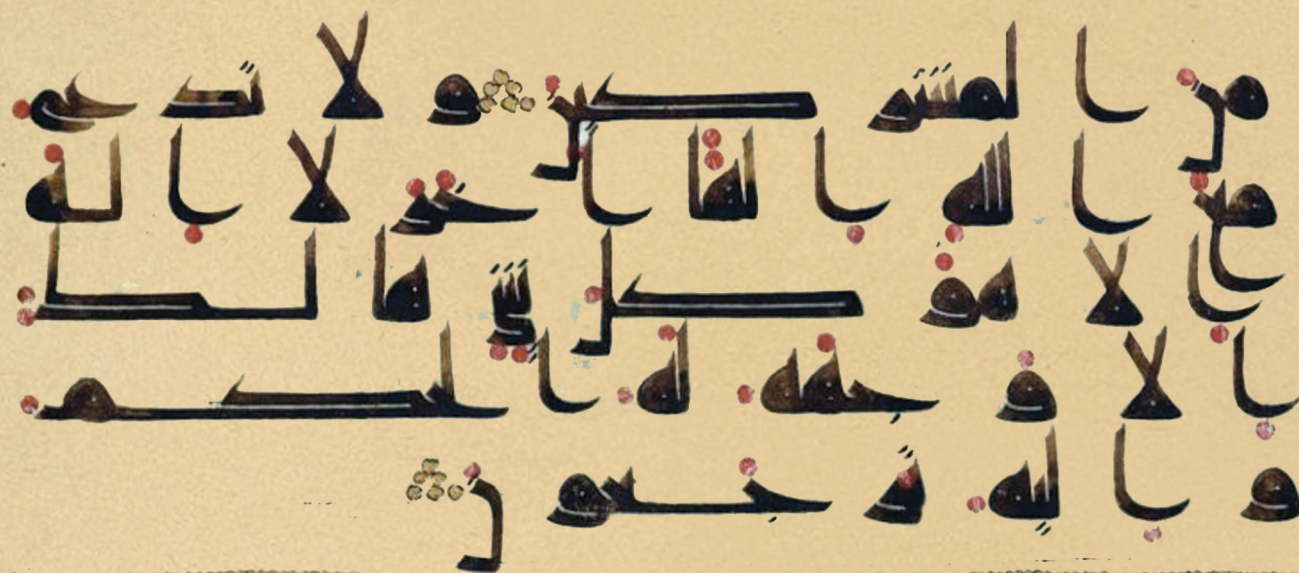 من المشركين ولا تدع
مع الله الها اخر لا اله
الا هو كل شي هالك
الا وجهه له الحكم
واليه ترجعون